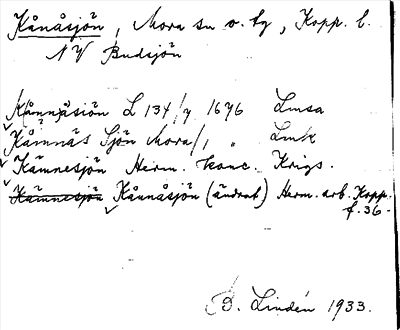 Kånåsjön, Mora sn o. tg, Kopp. l.
NV Budsjön
Kånnåsiön L 134/7 1696 Lmsa
Kåmnäs Sjön Mora/1 " Lmk
Kämnesjön Herm. konc. Krigs.
Kämnesjön Kånåsjön (ändrat) Herm. arb. Kopp.
f. 36.
D. Lindén 1933.